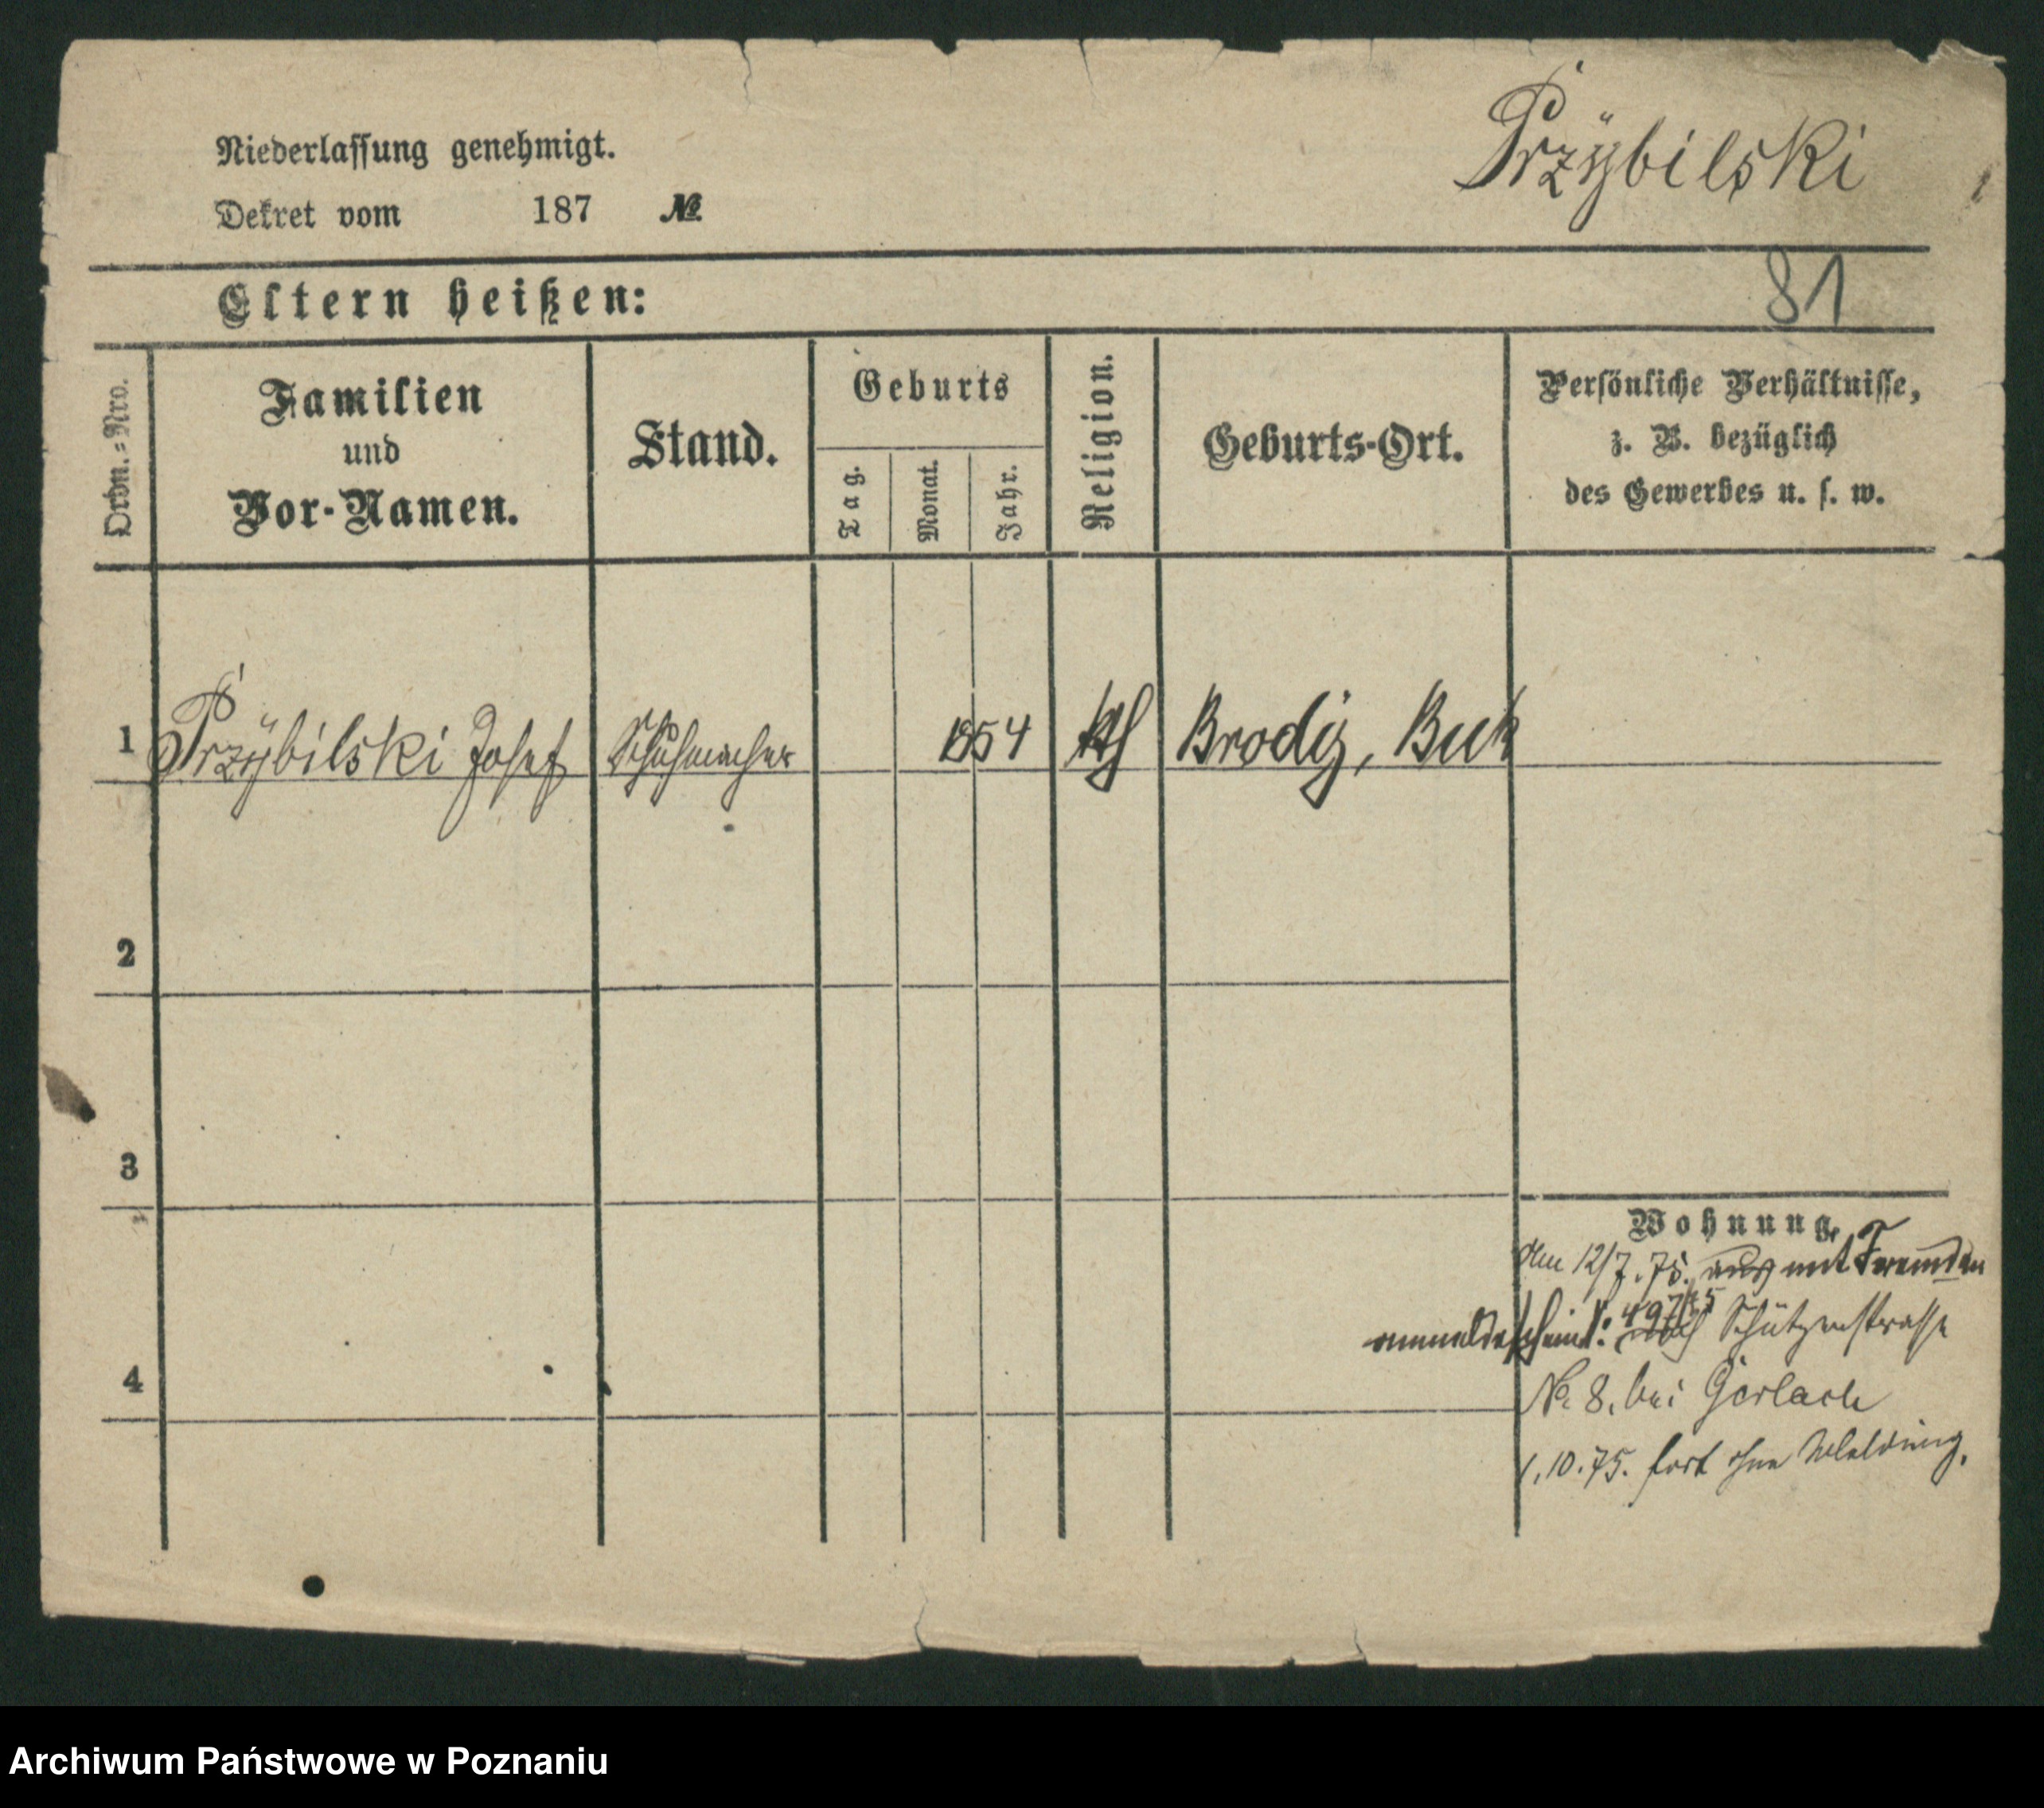 Niederlassung genehmigt.
Dekret vom 187 №
Przÿbilski
Eltern heißen:
81
Ordn.=Nro.
Familien
und
Vor-Namen.
Stand.
Geburts
Tag.
Monat.
Jahr.
Religion.
Geburts-Ort.
Persönliche Verhältnisse,
z. B. bezüglich
des Gewerbes u. s. w.
1 Przÿbilski Josef Schuhmacher 1854 kth Brody, Buk
2
3
4
Wohnung.
Am 12/7.75. aus mit Fremden
anmeldeschein: 497/75 Schützenstrasse
No. 8. bei Gerlach
1.10.75. fort ohne Meldung.
Archiwum Państwowe w Poznaniu